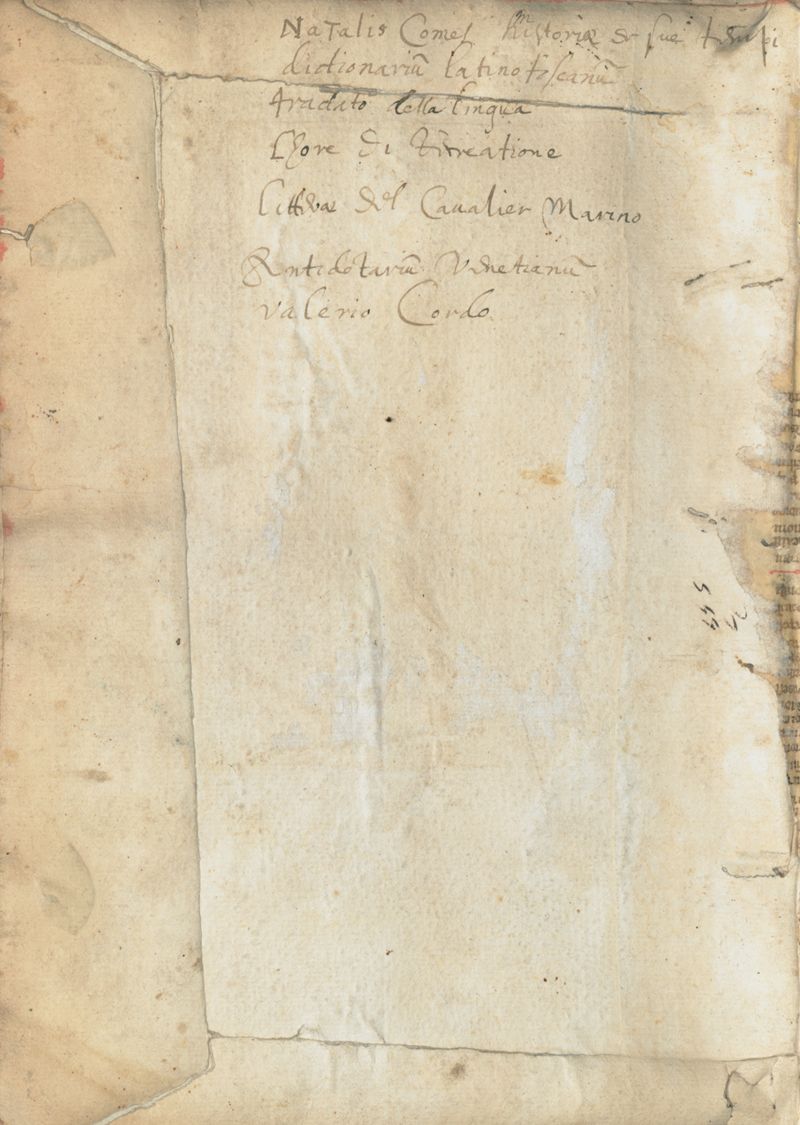 Natalis Comes historiæ de sue tempi
dictionariũ latino toscanũ
tradato della lingua
L'hore di recreatione
littere del Caualier Marino
Antidotariũ Venetianũ
Valerio Cordo